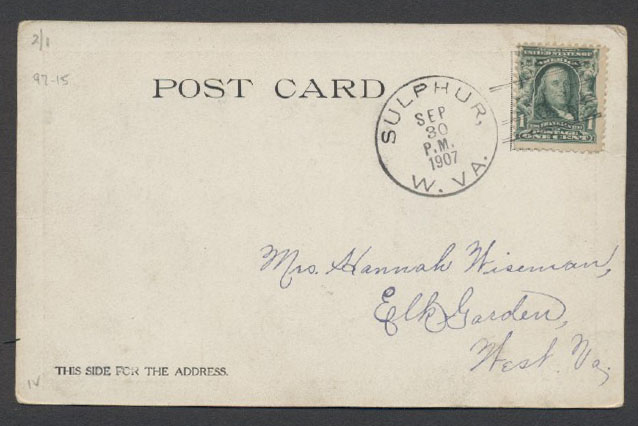 2/1
97-15
POST CARD
SULPHUR,
SEP
30
P.M.
1907
W. VA.
1
ONE CENT
Mrs. Hannah Wiseman,
Elk Garden,
West. Va.
THIS SIDE FOR THE ADDRESS.
IV